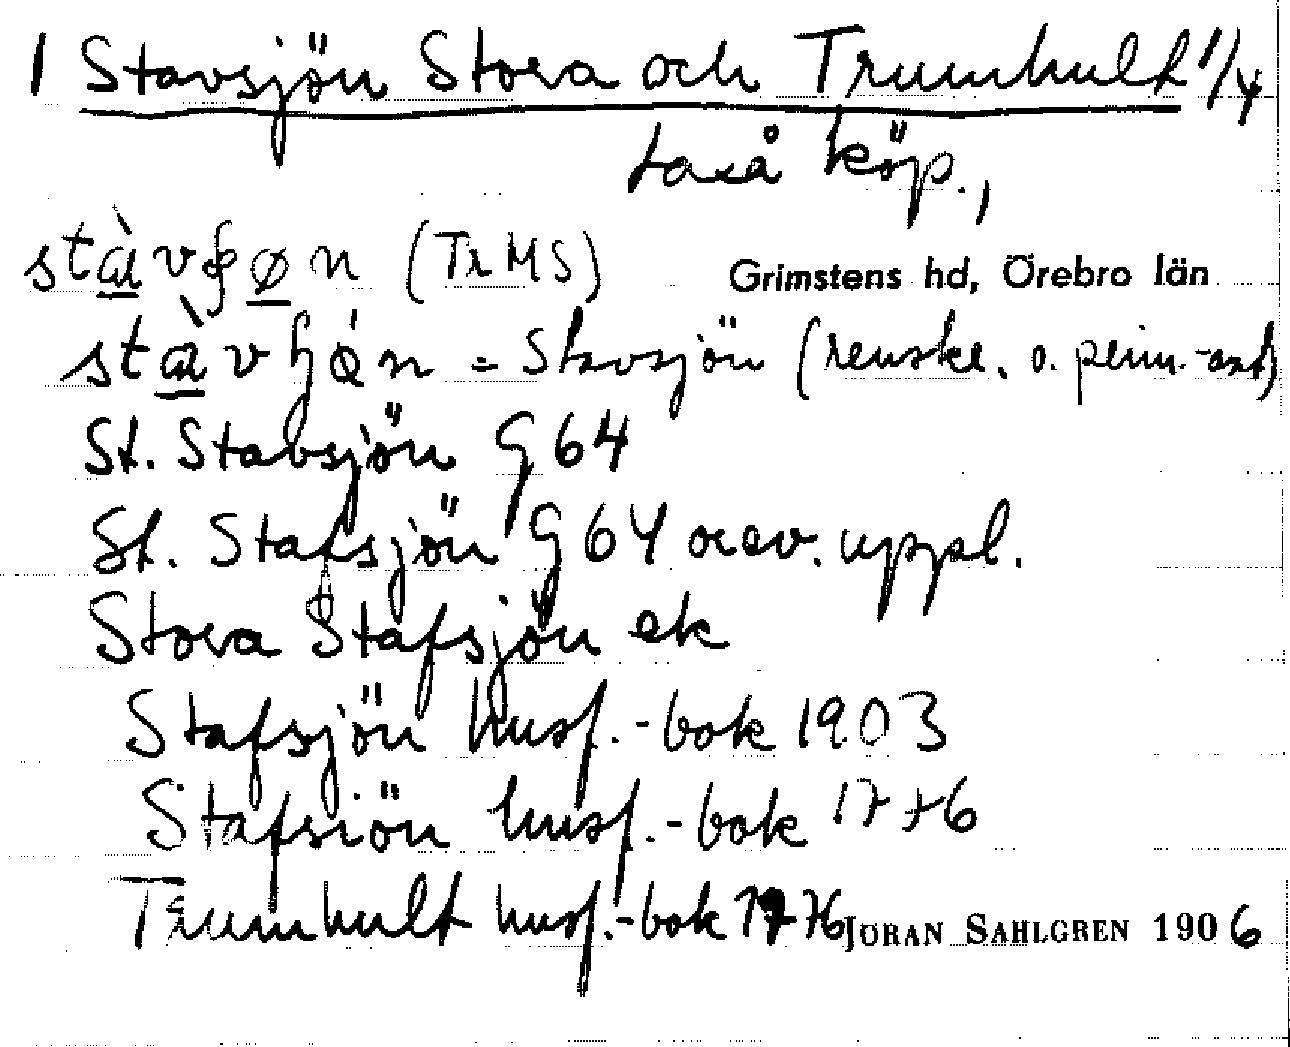 1 Stavsjön Stora och Trumhult 1/4
Laxå köp.,
(TrMS)
Grimstens hd, Örebro län
= Stavsjön (renskr. o. perm.-ant)
St. Stavsjön G 64
St. Stafsjön G 64 orev. uppl.
Stora Stafsjön ek
Stafsjön husf.-bok 1903
Stafsiön husf.-bok 1776
Trumhult husf.-bok 1776
JÖRAN SAHLGREN 1906